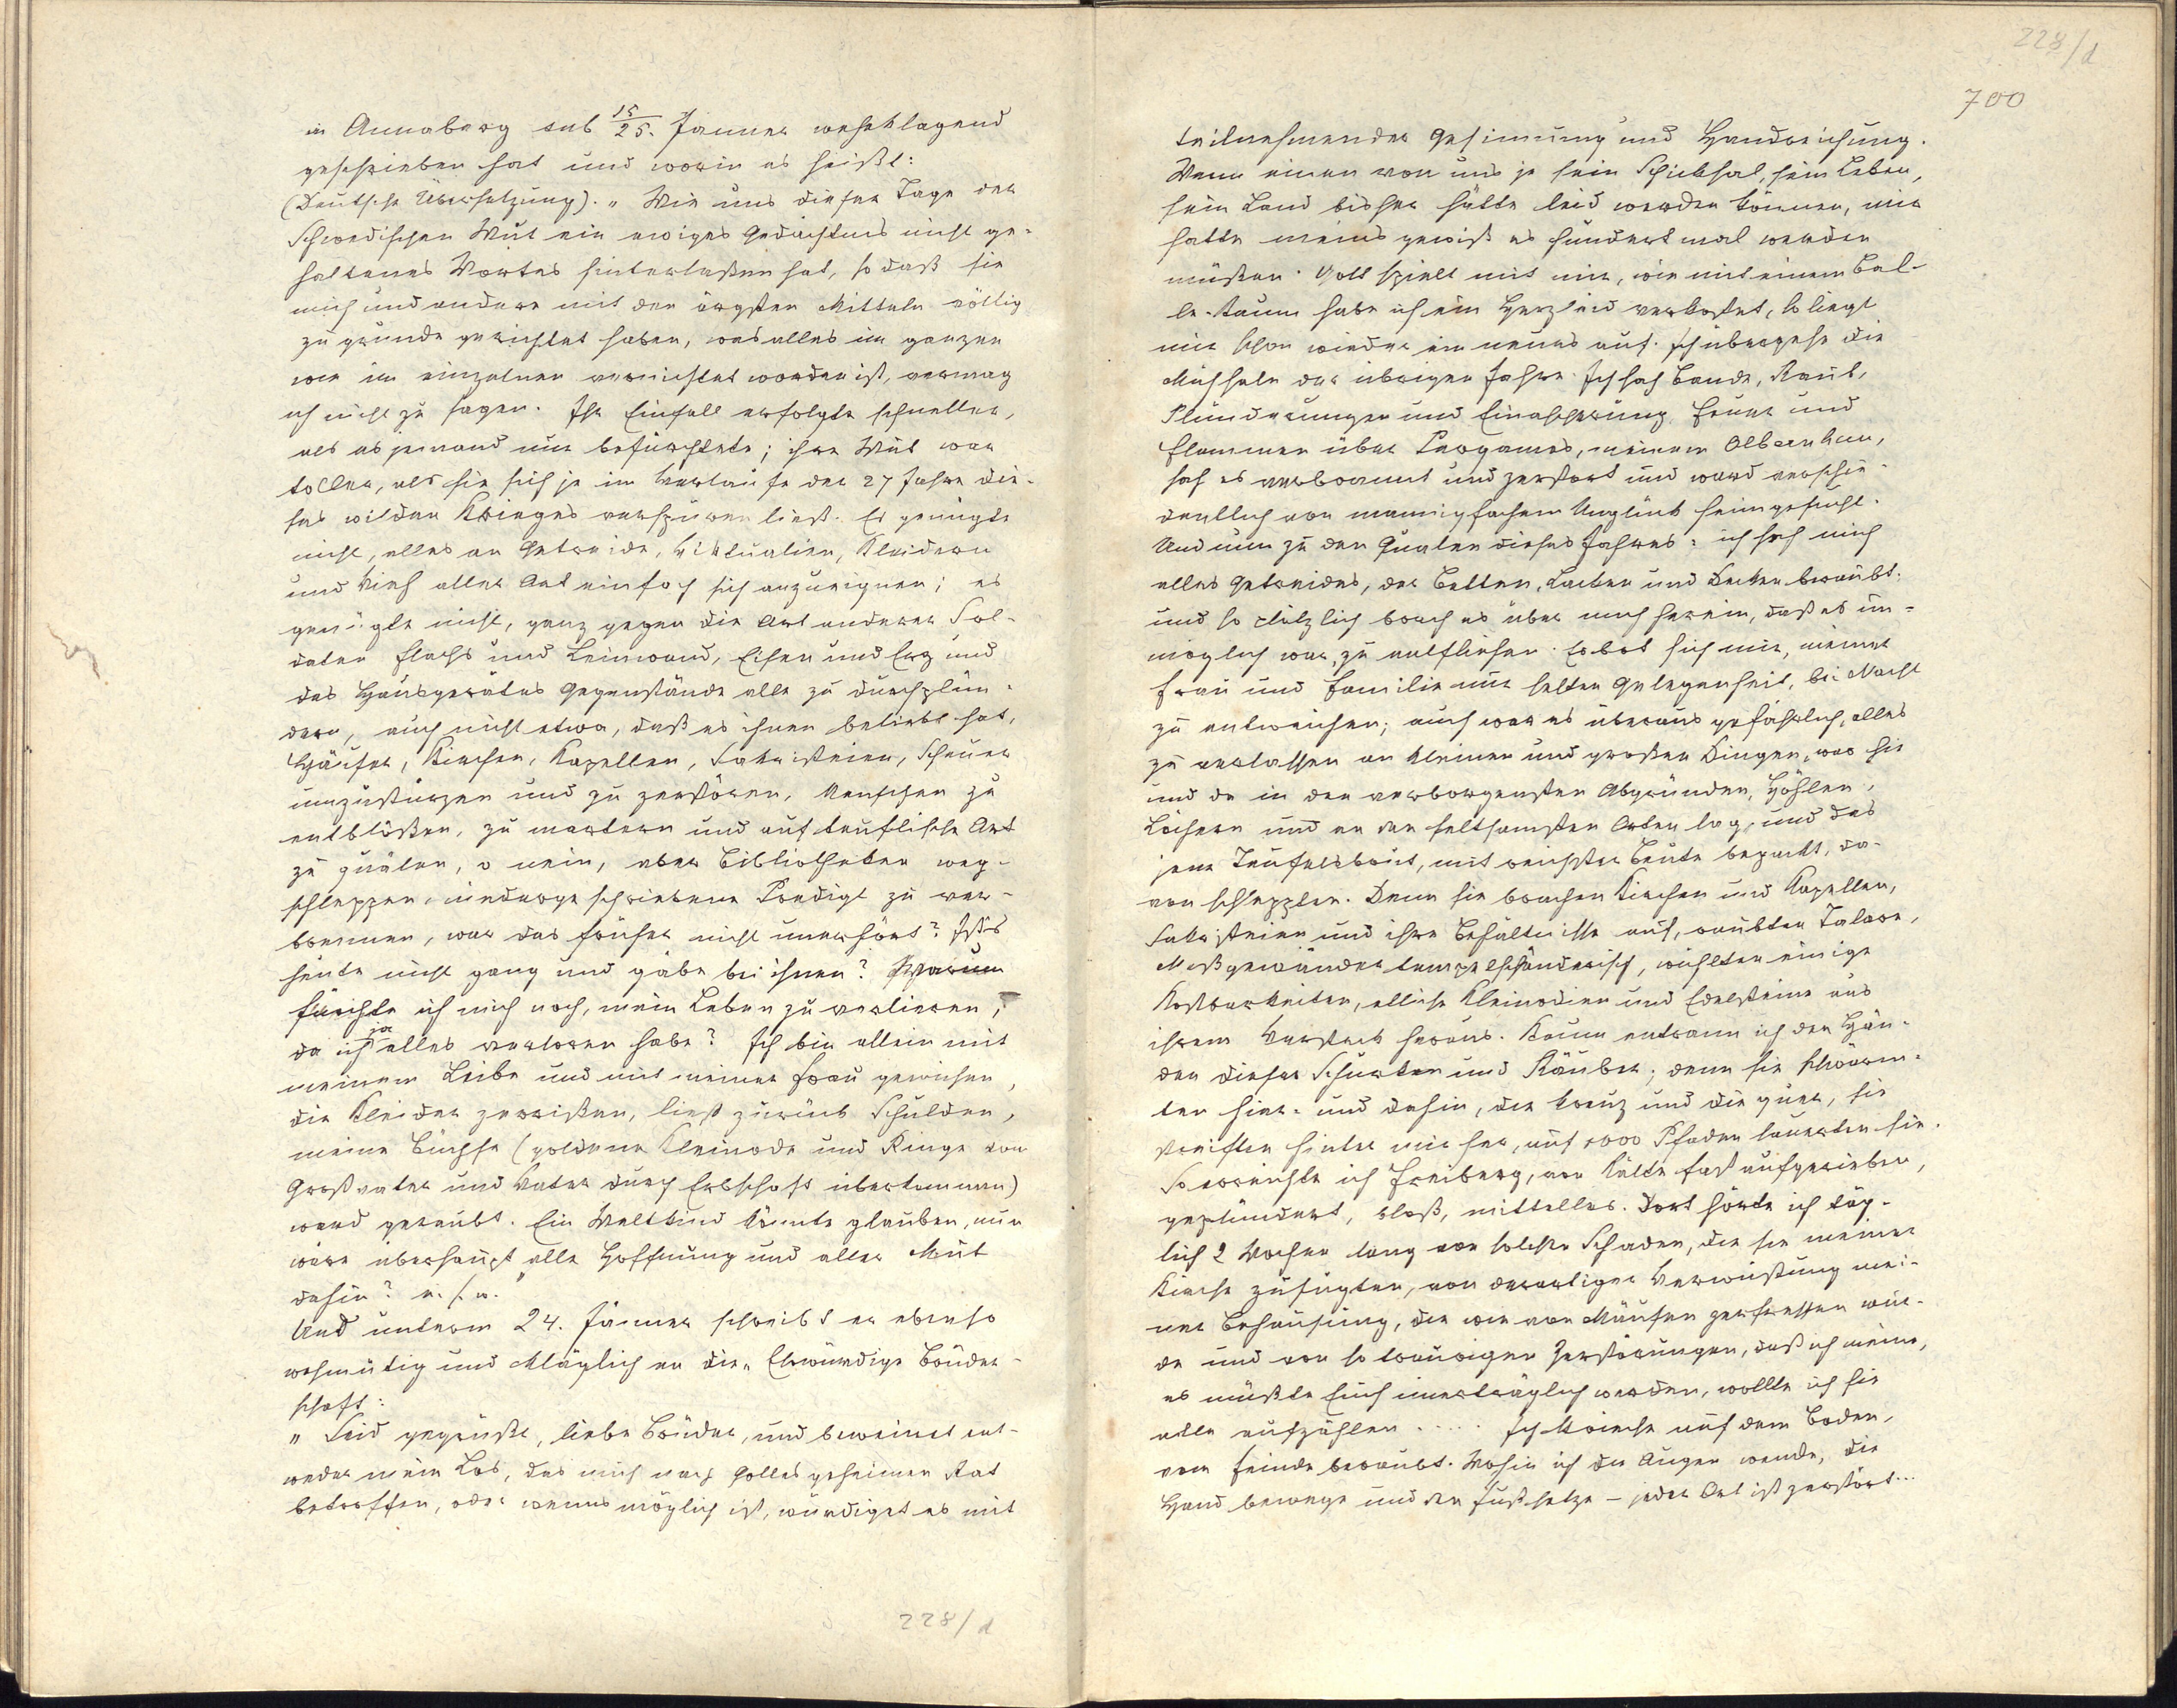 in Annaberg sub 15/25. Jänner wehklagend
geschrieben hat und worin es heißt:
(Deutsche Übersetzung). „Wie uns dieser Tage der
Schwedischen Wut ein ewiges Gedächtnis nicht ge-
haltenes Wortes hinterlaßen hat, so daß sie
mich und andere mit den ärgsten Mitteln völlig
zu grunde gerichtet haben, was alles im ganzen
wie im einzelnen vernichtet worden ist, vermag
ich nicht zu sagen. Ihr Einfall erfolgte schneller,
als es jemand nur befürchtete; ihre Wut war
toller, als sie sich je im Verlaufe der 27 Jahre die-
ses wilden Krieges verspüren ließ. Es genügte
nicht, alles an Getreide, Viktualien, Kleidern
und Vieh aller Art einfach sich anzueignen; es
genügte nicht, ganz gegen die Art anderer Sol-
daten Flachs und Leinwand, Eisen und Erz und
des Hausgerätes Gegenstände alle zu durchplün-
dern, auch nicht etwa, daß es ihnen beliebt hat,
Häuser, Kirchen, Kapellen, Sakristeien, Scheuer
umzustürzen und zu zerstören, Menschen zu
entblößen, zu martern und auf teuflische Art
zu quälen, o nein, aber Bibliotheken weg-
schleppen, niedergeschriebene Predigt zu ver-
brennen, war das früher nicht unerhört? Ists
heute nicht gang und gäbe bei ihnen? Warum
fürchte ich mich noch, mein Leben zu verlieren,
da ich ja alles verloren habe? Ich bin allein mit
meinem Leibe und mit meiner Frau gewichen,
die Kleider zerrißen, ließ zurück Schulden,
meine Büchse (goldene Kleinode und Ringe von
Großvater und Vater durch Erbschaft überkommen)
ward geraubt. Ein Weltkind könnte glauben, nun
wäre überhaupt alle Hoffnung und aller Mut
dahin? u. s. w."
Und unterm 24. Jänner schreibt er ebenso
wehmütig und kläglich an die „Ehrwürdige Brüder-
schaft:
„Seid gegrüßt, liebe Brüder, und beweinet ent-
weder mein Los, das mich nach Gottes geheimen Rat
betroffen, oder wenns möglich ist, würdiget es mit
228/d
228/d
700
teilnehmender Gesinnung und Handreichung.
Wenn einen von uns je sein Schicksal, sein Leben,
sein Land bisher hätte leid werden können, mir
hätte meins gewiß es hundert mal werden
müßen. Gott spielt mit mir, wie mit einem Bal-
le. Kaum habe ich ein Herzleid verkostet, so liegt
mir schon wieder ein neues auf. Ich übergehe die
Mühsale der übrigen Jahre. Ich sah Bande, Raub,
Plünderungen und Einäscherung, Feuer und
Flammen über Pergamos, meinem Olbernhau,
sah es verbrannt und zerstört und ward verschie-
dentlich von mannigfachem Unglück heimgesucht.
Und nun zu den Qualen dieses Jahres: ich sah mich
alles Getreides, der Betten, Laken und Decken beraubt;
und so plötzlich brach es über mich herein, daß es un-
möglich war, zu entfliehen. Es bot sich mir, meiner
Frau und Familie nur selten Gelegenheit, bei Nacht
zu entweichen; auch war es überaus gefährlich, alles
zu verlassen an kleinen und großen Dingen, was hie
und da in den verborgensten Abgründen, Höhlen,
Löchern und an den seltsamsten Orten lag, und das
jene Teufelsbrut, mit reichster Beute bepackt, da-
von schleppten. Denn sie brachen Kirchen und Kapellen,
Sakristeien und ihre Behältnisse auf, raubten Talare,
Meßgewänder tempelschänderisch, wühlten einige
Kostbarkeiten, etliche Kleinodien und Edelsteine aus
ihrem Versteck heraus. Kaum entrann ich den Hän-
den dieser Schurken und Räuber; denn sie schwärm-
ten hier- und dahin, die kreuz und die quer, sie
streiften hinter mir her, auf 1000 Pfaden lauerten sie.
So erreichte ich Freiberg, von Kälte fast aufgerieben,
geplündert, bloß, mittellos. Dort hörte ich täg-
lich 2 Wochen lang von solchen Schaden, die sie meiner
Kirche zufügten, von derartiger Verwüstung mei-
ner Behausung, die wie von Mäusen zerfressen wür-
de und von so traurigen Zerstörungen, daß ich meine,
es müßte Euch unerträglich werden, wollte ich sie
alle aufzählen ..... Ich krieche auf dem Boden,
vom Feinde beraubt. Wohin ich die Augen wende, die
Hand bewege und den Fuß setze – jeder Ort ist zerstört...